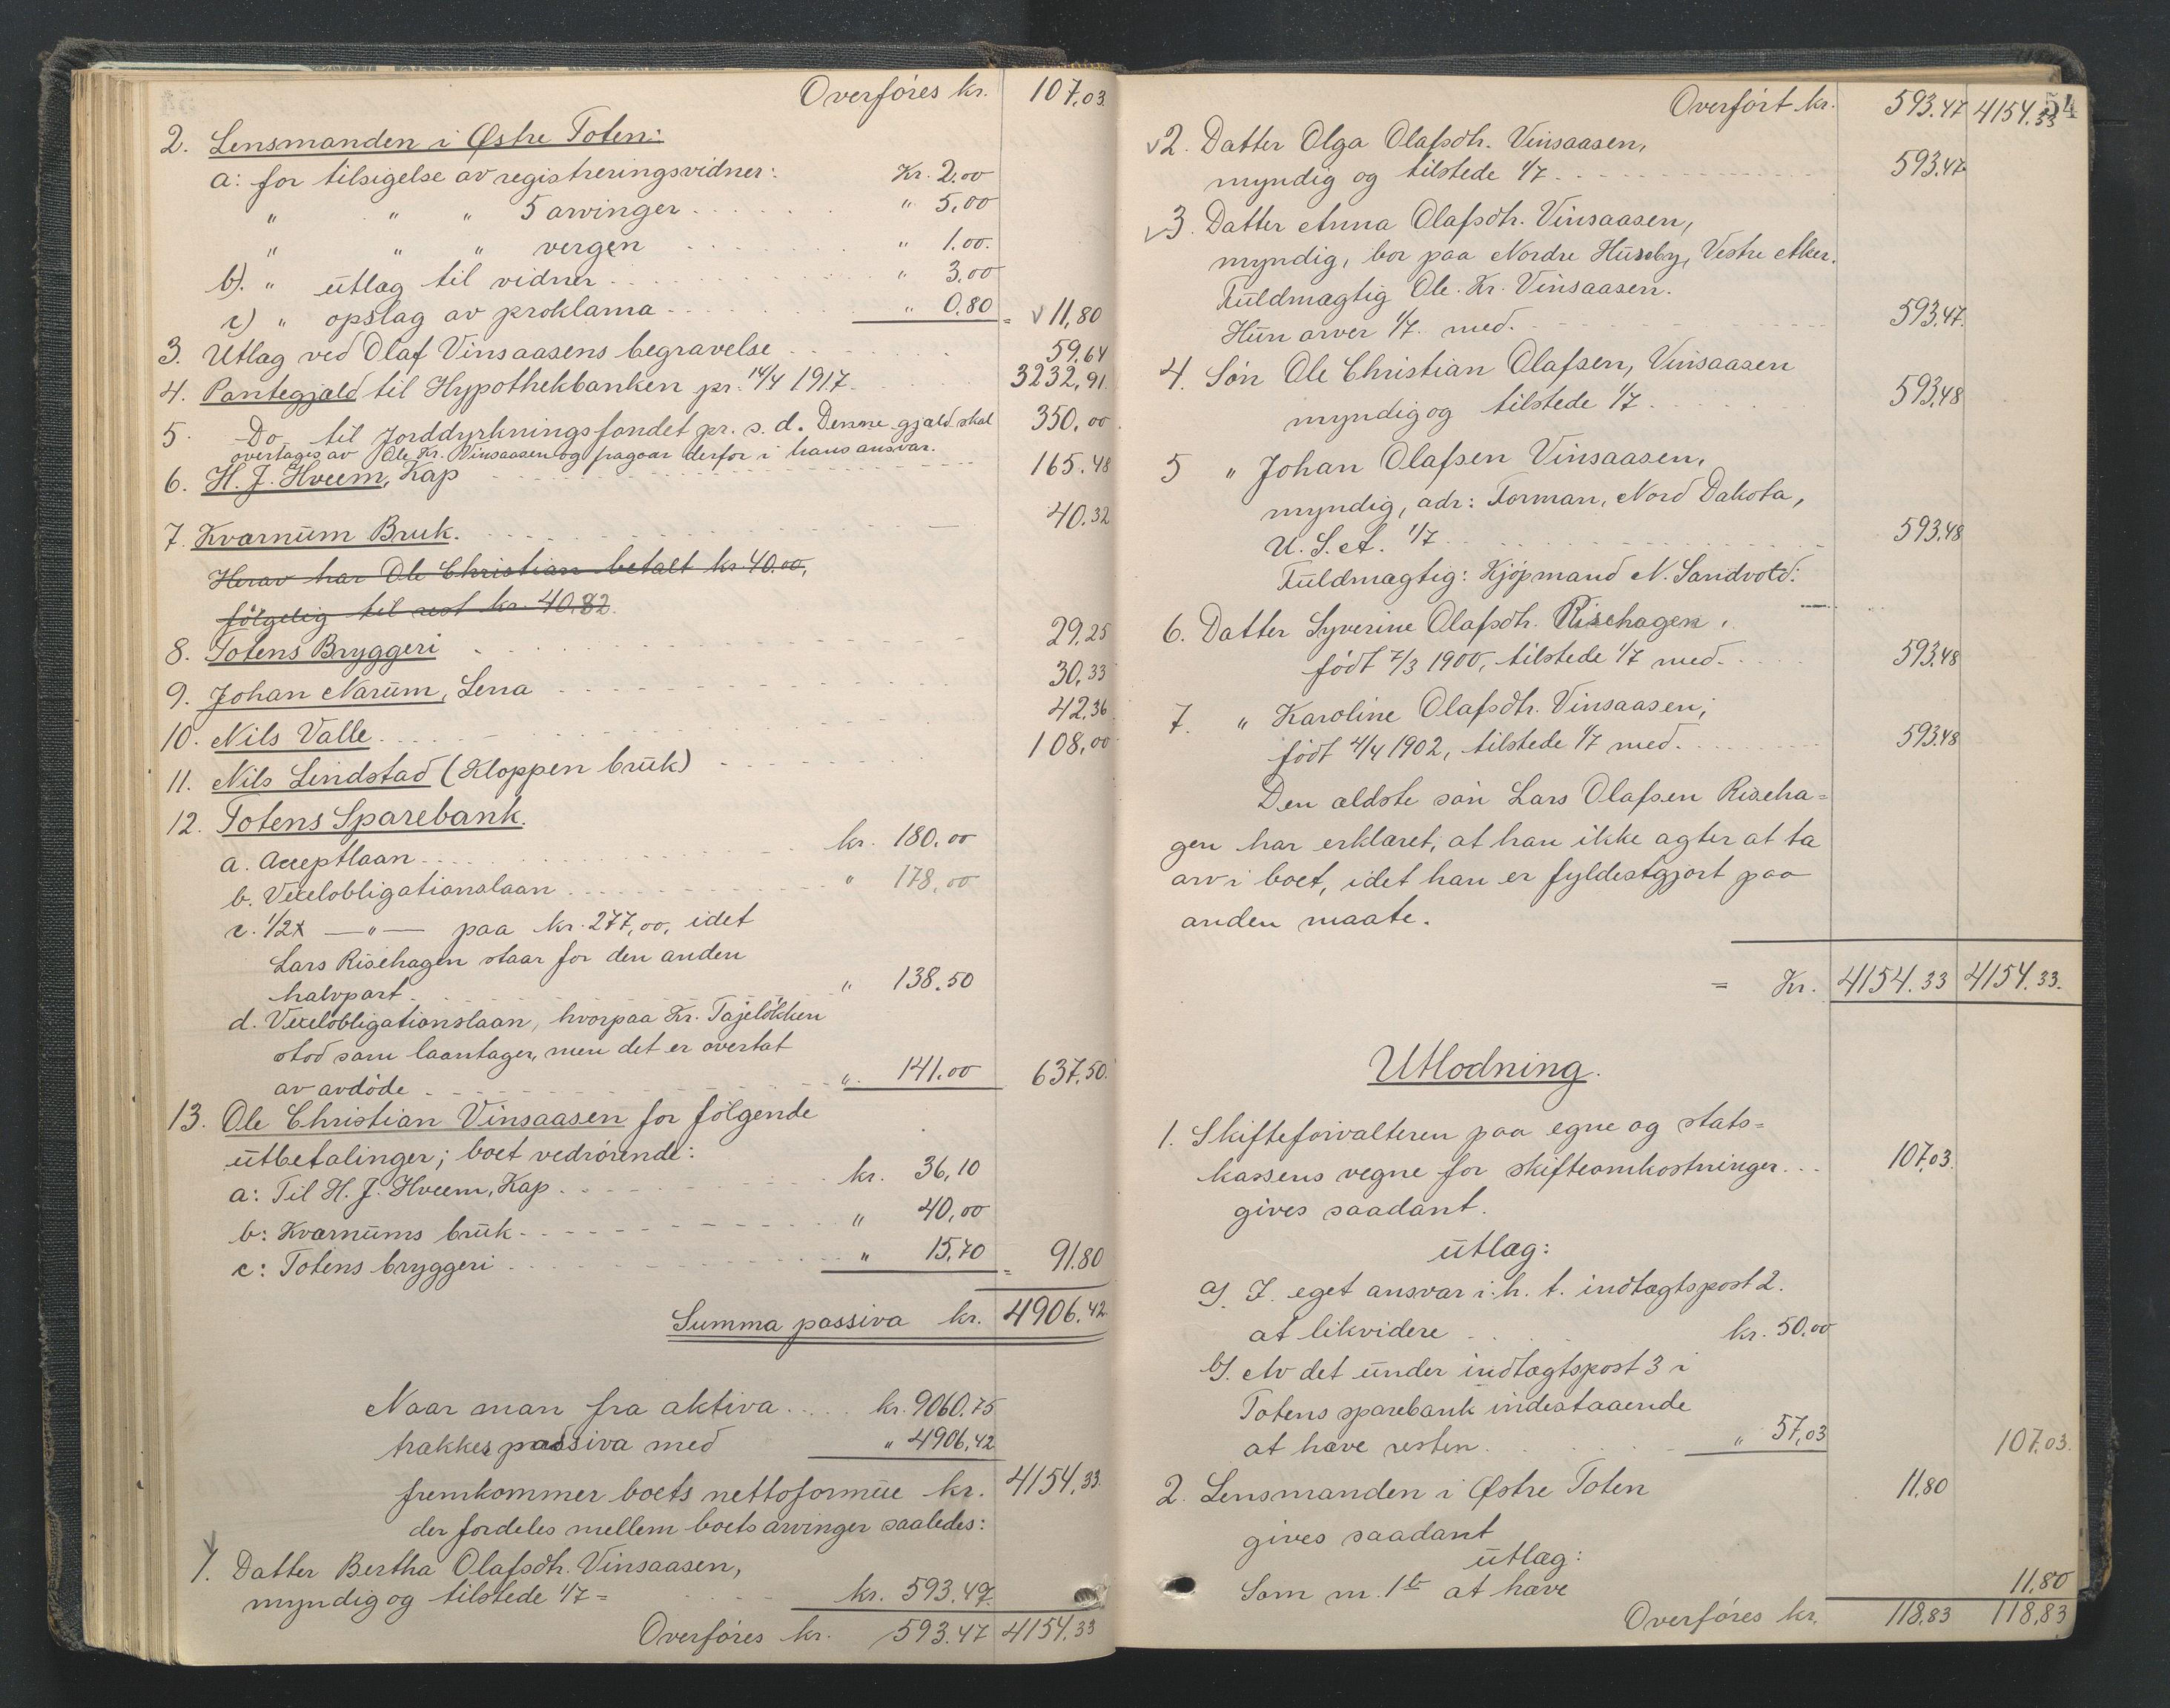 Overføres kr. 107,03
2. Lensmanden i Østre Toten:
a: for tilsigelse av registreringsvidner: Kr. 2,00
" " " 5 arvinger " 5,00
" " " vergen " 1.00.
b). " utlæg til vidner " 3,00
c) " opslag av proklama " 0,80 = 11,80
3. Utlæg ved Olaf Vinsaasens begravelse 59,64
4. Pantegjæld til Hypothekbanken pr. 14/4 1917. 3232,91
5. Do til Jorddyrkningsfondet pr. s. d. Denne gjæld skal 350,00
overtages av Ole Kr. Vinsaasen og fragaar derfor i hans ansvar.
6. H. J. Hveem, Kap 165.48
7. Kvarnum Bruk. 40.32
Herav har Ole Christian betalt kr. 40.00,
følgelig til rest kr. 40,82.
8. Totens Bryggeri 29,25
9. Johan Narum, Lena 30,33
10. Nils Valle 42,36
11. Nils Lindstad (Kloppen bruk) 108,00
12. Totens Sparebank.
a. Acceptlaan kr. 180,00
b. Vexelobligationslaan " 178,00
c. 1/2 x —"— paa kr. 277,00, idet
Lars Risehagen staar for den anden
halvpart. " 138.50
d. Vexelobligationslaan, hvorpaa Kr. Tajeløkken
stod som laantager, men det er overtat
av avdøde " 141.00 637,50.
13. Ole Christian Vinsaasen for følgende
utbetalinger; boet vedrørende:
a: Til H. J. Hveem, Kap. kr. 36,10
b: Kvarnums bruk " 40,00
c: Totens bryggeri " 15,70 = 91.80
Summa passiva kr. 4906,42
Naar man fra aktiva kr. 9060.75
trækkes passiva med " 4906,42
fremkommer boets nettoformue kr. 4154,33.
der fordeles mellem boets arvinger saaledes:
1. Datter Bertha Olafsdtr. Vinsaasen,
myndig og tilstede 1/7 = kr. 593.47.
Overføres kr. 593.47 4154.33
54
Overført kr. 593.47 4154.33
2. Datter Olga Olafsdtr. Vinsaasen,
myndig og tilstede 1/7 593.47
3. Datter Anna Olafsdtr. Vinsaasen,
myndig, bor paa Nordre Huseby, Vestre Aker.
Fuldmægtig Ole Kr. Vinsaasen.
Hun arver 1/7 med. 593.47.
4. Søn Ole Christian Olafsen, Vinsaasen
myndig og tilstede 1/7 593.48
5 " Johan Olafsen Vinsaasen,
myndig, adr: Forman, Nord Dakota,
U. S. A. 1/7 593.48
Fuldmægtig: Kjøpmand N. Sandvold.
6. Datter Syverine Olafsdtr. Risehagen,
født 7/3 1900, tilstede 1/7 med. 593.48
7. " Karoline Olafsdtr. Vinsaasen,
født 4/4 1902, tilstede 1/7 med. 593.48
Den ældste søn Lars Olafsen Riseha=
gen har erklæret, at han ikke agter at ta
arv i boet, idet han er fyldestgjort paa
anden maate.
= Kr. 4154.33 4154.33.
Utlodning.
1. Skifteforvalteren paa egne og stats=
kassens vegne for skifteomkostninger 107,03.
gives saadant.
utlæg:
a). I eget ansvar i. h. t. indtægtspost 2.
at likvidere kr. 50,00
b). Av det under indtægtspost 3 i
Totens sparebank indestaaende
at hæve resten. " 57,03 107,03.
2. Lensmanden i Østre Toten 11,80
gives saadant
utlæg:
Som nr. 1 b at hæve 11.80
Overføres kr. 118,83 118,83